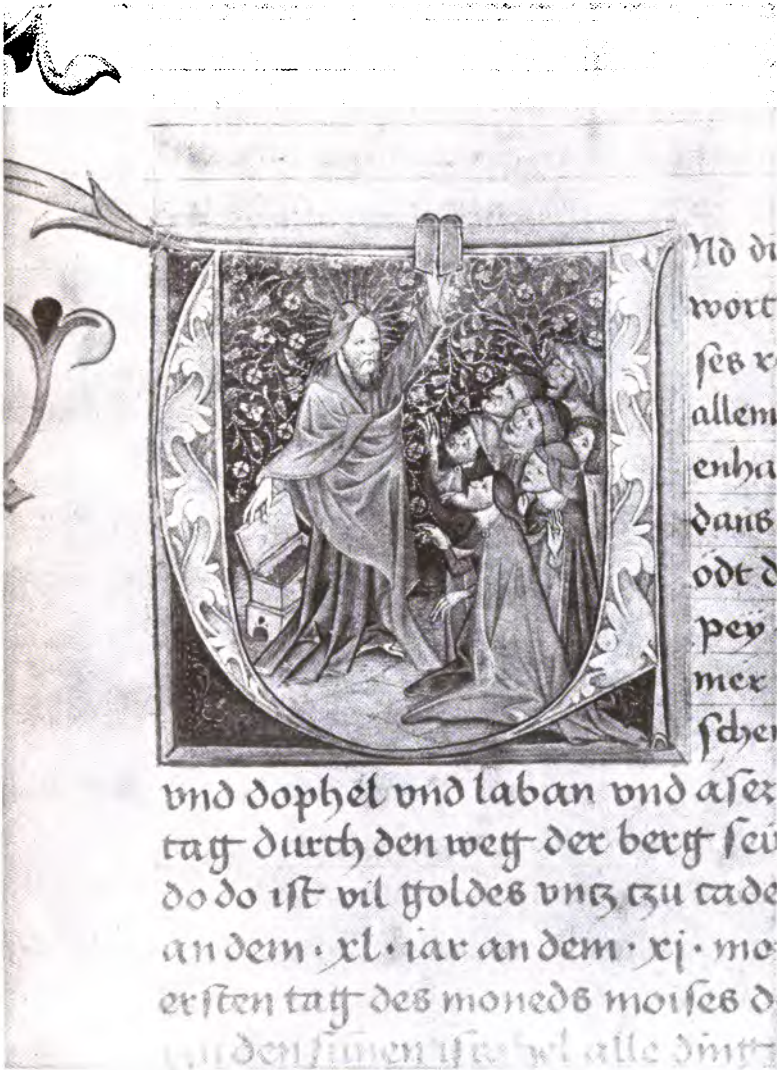 Nd di
wort
ses
allem
enha
dans
odt d
pey
mer
schen
vnd dophel vnd laban vnd aser
tag durch den weg der berg sei
do do ist vil goldes vntz tzu cade
an dem · xl · iar an dem · xj · mo
ersten tag des moneds moises d
den sunen israhel alle ding